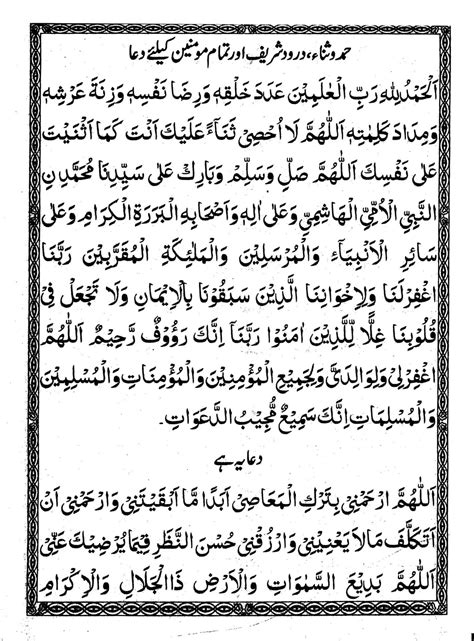 حمد وثناء، درود شریف اور تمام مومنین کیلئے دعا
اَلْحَمْدُ لِلّٰهِ رَبِّ الْعٰلَمِیْنَ عَدَدَ خَلْقِهٖ وَرِضَا نَفْسِهٖ وَزِنَةَ عَرْشِهٖ
وَمِدَادَ كَلِمٰتِهٖ اَللّٰهُمَّ لَا اُحْصِیْ ثَنَآءً عَلَیْكَ اَنْتَ كَمَا اَثْنَیْتَ
عَلٰی نَفْسِكَ اَللّٰهُمَّ صَلِّ وَسَلِّمْ وَبَارِكْ عَلٰی سَیِّدِنَا مُحَمَّدِنِ
النَّبِیِّ الْاُمِّیِّ الْهَاشِمِیِّ وَعَلٰی اٰلِهٖ وَاَصْحَابِهِ الْبَرَرَةِ الْكِرَامِ وَعَلٰی
سَائِرِ الْاَنْبِیَآءِ وَالْمُرْسَلِیْنَ وَالْمَلٰئِكَةِ الْمُقَرَّبِیْنَ رَبَّنَا
اغْفِرْلَنَا وَلِاِخْوَانِنَا الَّذِیْنَ سَبَقُوْنَا بِالْاِیْمَانِ وَلَا تَجْعَلْ فِیْ
قُلُوْبِنَا غِلًّا لِّلَّذِیْنَ اٰمَنُوْا رَبَّنَآ اِنَّكَ رَؤُوْفٌ رَّحِیْمٌ اَللّٰهُمَّ
اغْفِرْلِیْ وَلِوَالِدَیَّ وَلِجَمِیْعِ الْمُؤْمِنِیْنَ وَالْمُؤْمِنَاتِ وَالْمُسْلِمِیْنَ
وَالْمُسْلِمَاتِ اِنَّكَ سَمِیْعٌ مُّجِیْبُ الدَّعَوَاتِ۔
دعا یہ ہے
اَللّٰهُمَّ ارْحَمْنِیْ بِتَرْكِ الْمَعَاصِیْ اَبَدًا مَّا اَبْقَیْتَنِیْ وَارْحَمْنِیْ اَنْ
اَتَكَلَّفَ مَالَا یَعْنِیْنِیْ وَارْزُقْنِیْ حُسْنَ النَّظَرِ فِیْمَا یُرْضِیْكَ عَنِّیْ
اَللّٰهُمَّ بَدِیْعَ السَّمٰوَاتِ وَالْاَرْضِ ذَاالْجَلَالِ وَالْاِكْرَامِ